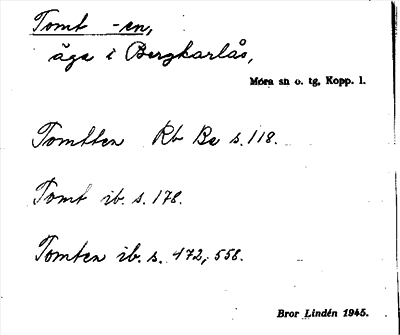 Tomt -en,
äga i Bergkarlås,
Mora sn o. tg, Kopp. l.
Tomtten Rb Be s. 118.
Tomt ib. s. 178.
Tomten ib. s. 472, 558.
Bror Lindén 1945.